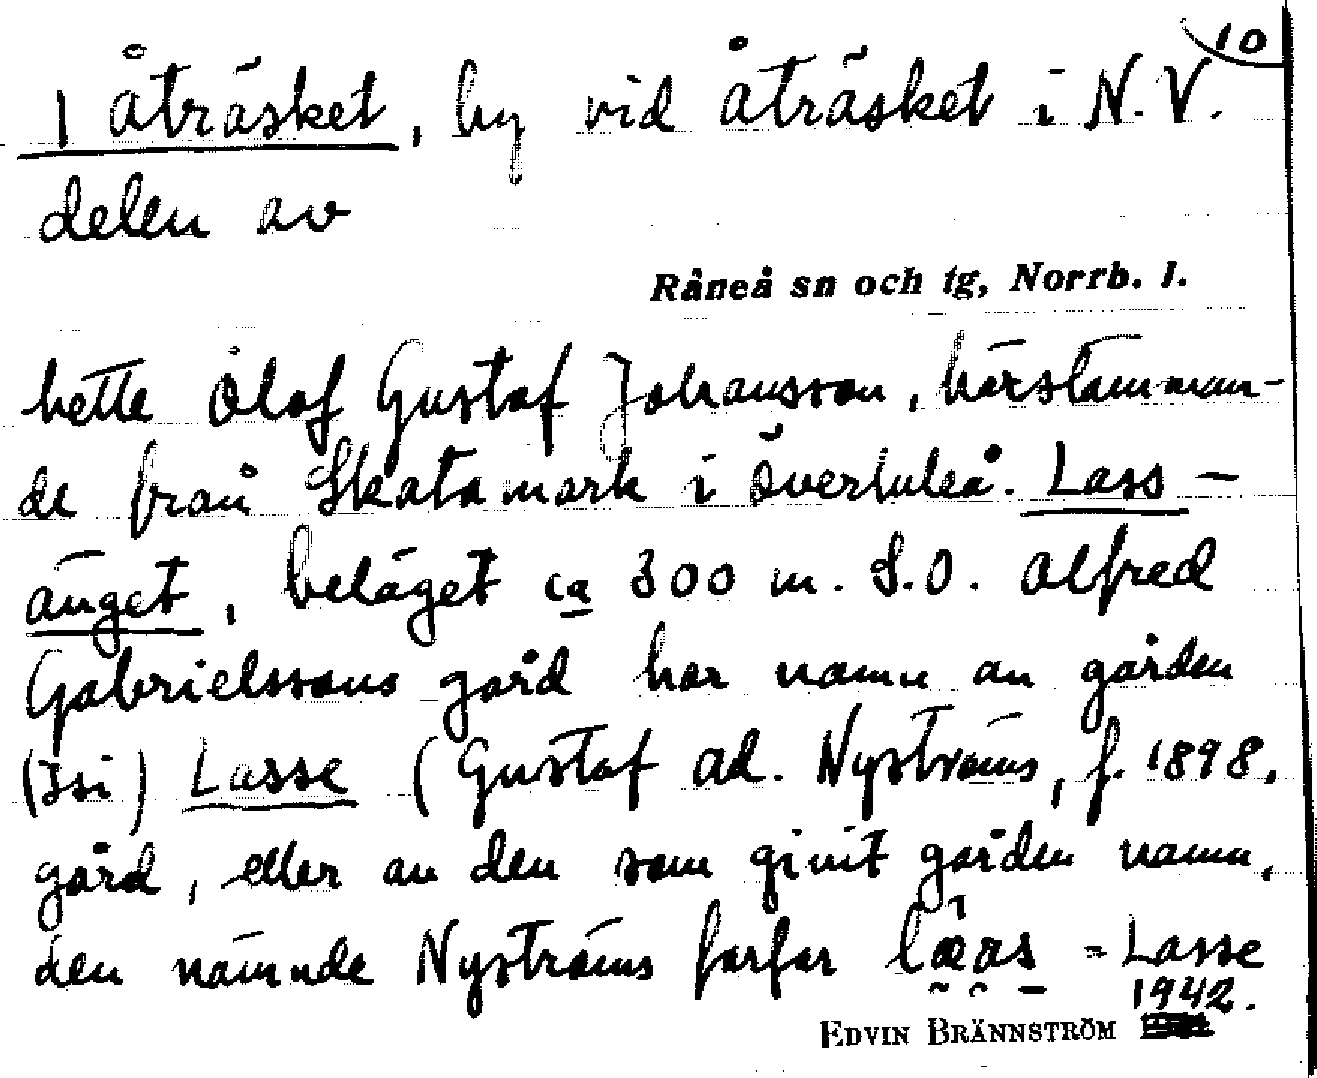 10
I Åträsket, by vid Åträsket i N.V.
delen av
Råneå sn och tg, Norrb. l.
hette Olof Gustaf Johansson, härstamman-
de från Skatamark i Överluleå. Lass-
änget, beläget ca 300 m. S.O. Alfred
Gabrielssons gård har namn av gården
(isi) Lasse (Gustaf Ad. Nyströms, f. 1898,
gård, eller av den som givit gården namn,
den nämnde Nyströms farfar = Lasse
1942.
EDVIN BRÄNNSTRÖM